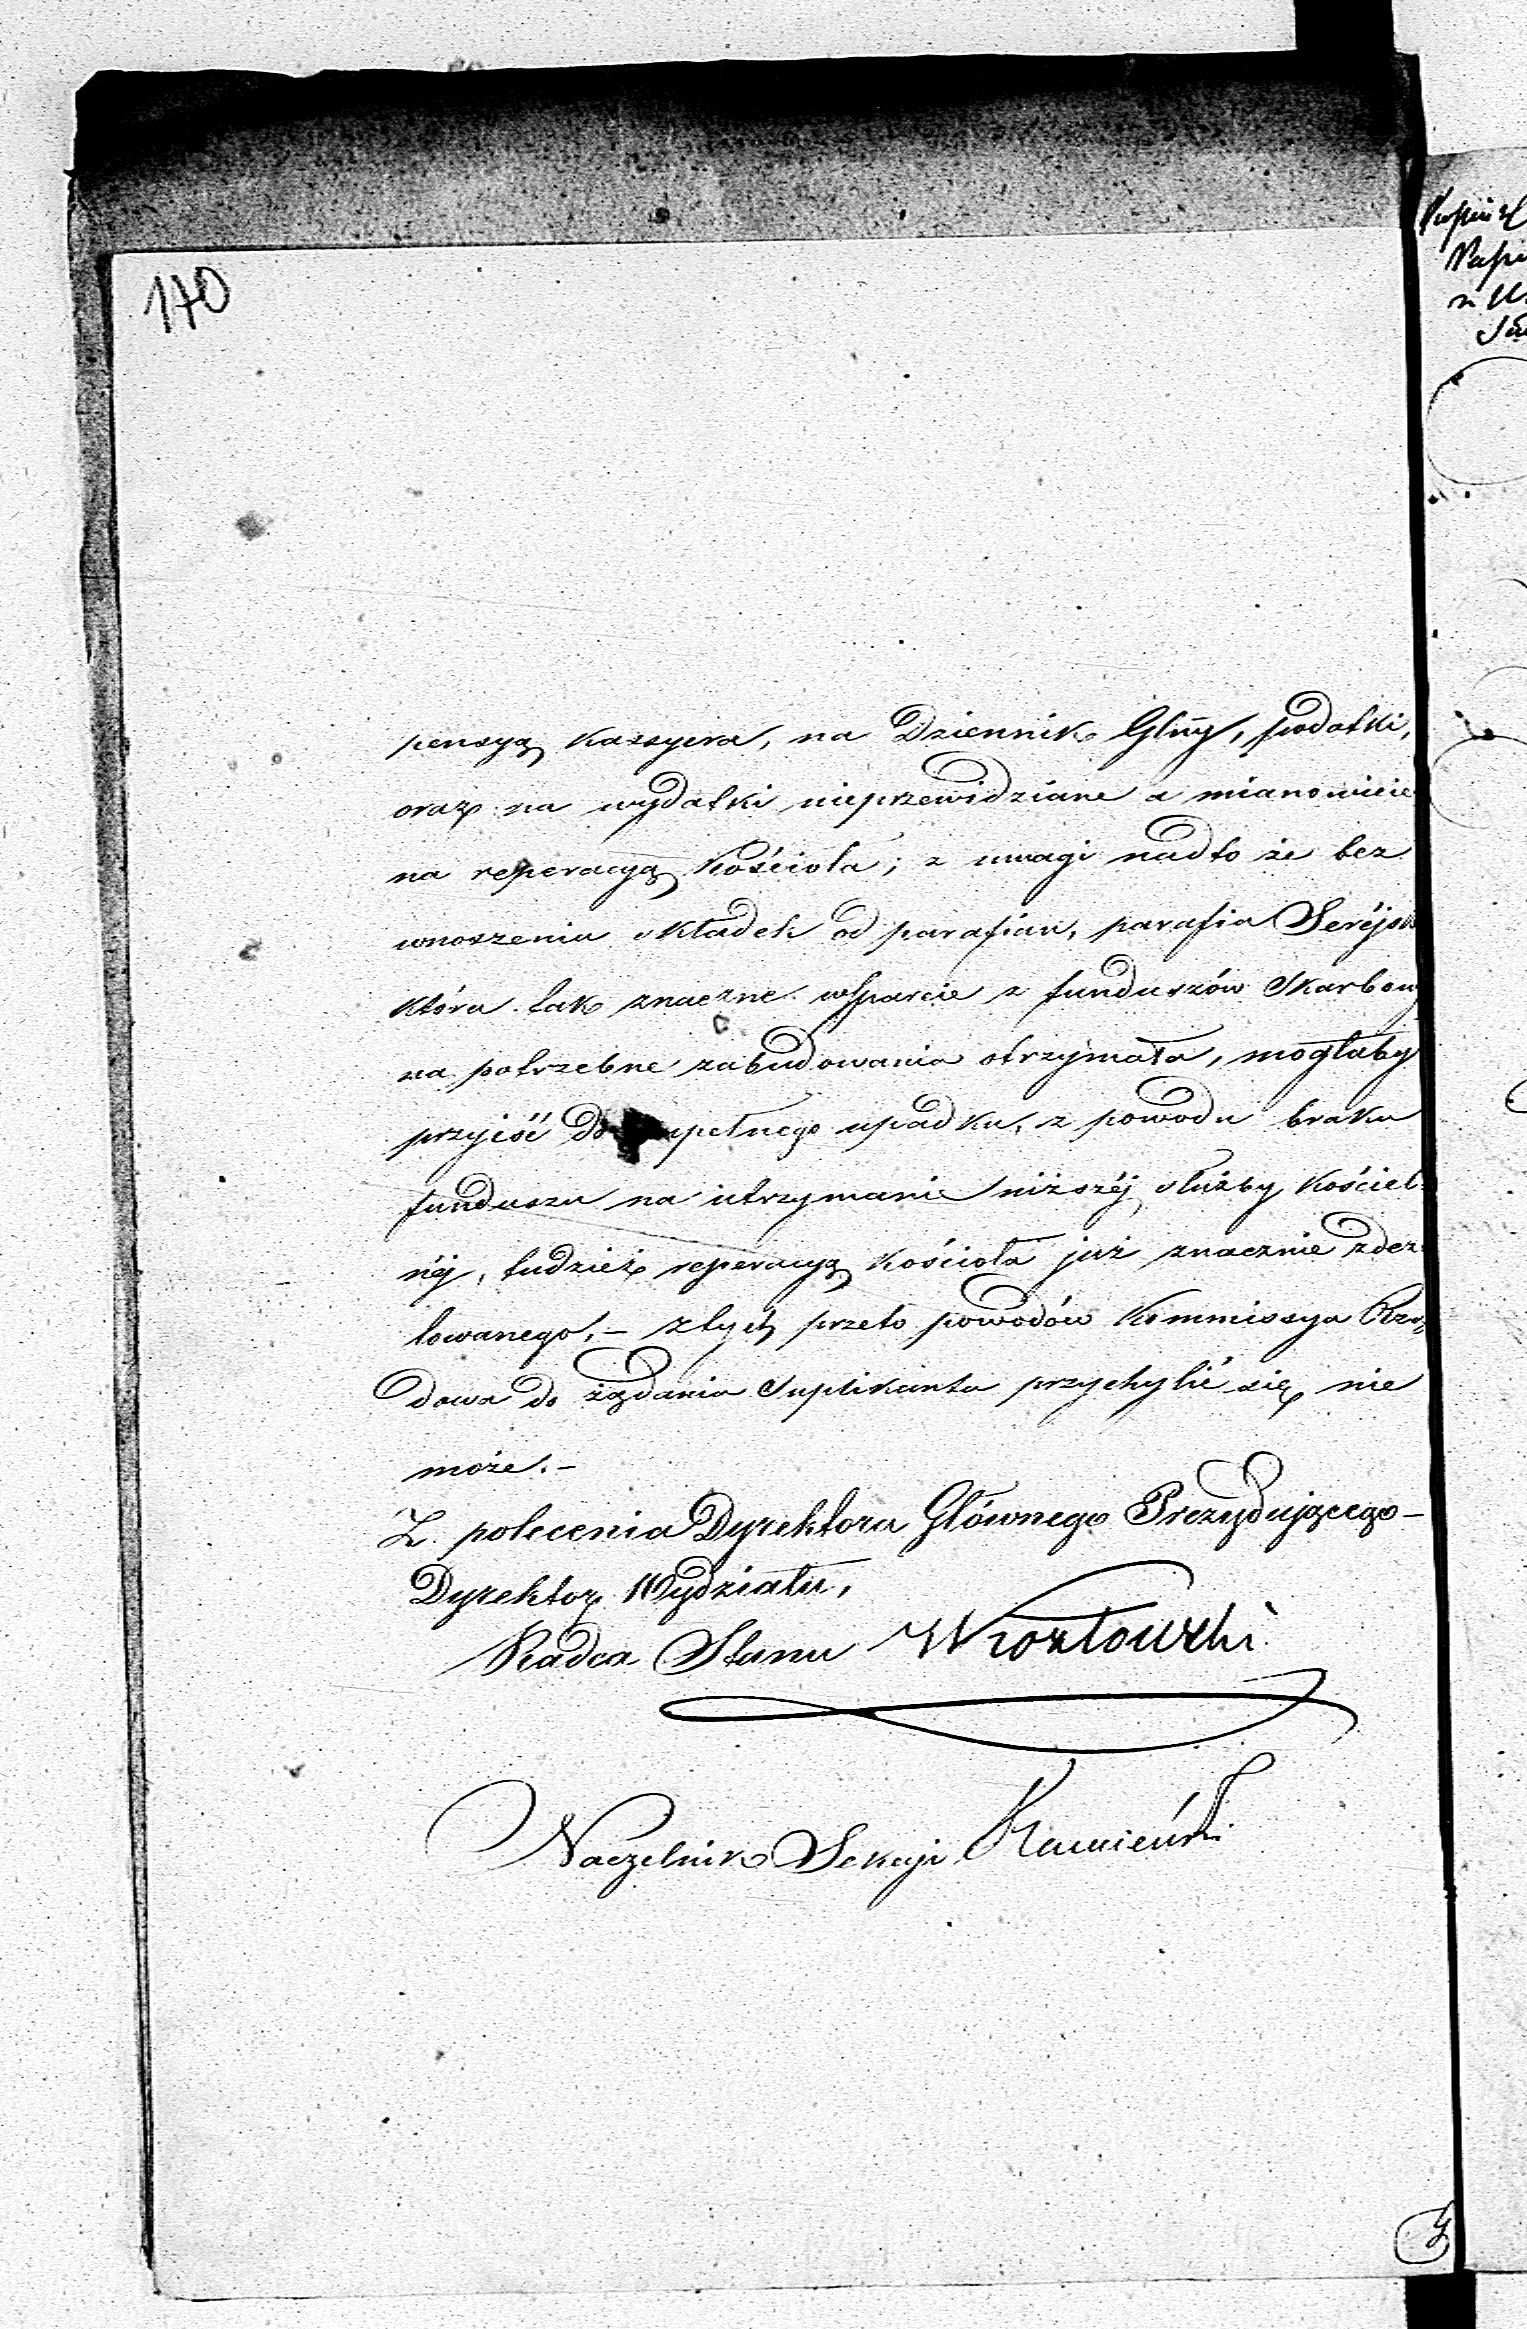 170
pensyą Kassyera, na Dziennik Głny, podatki,
oraz na wydatki nieprzewidziane a mianowicie
na reperacyą Kościoła; z uwagi nadto że bez
wnoszenia składek od parafian, parafia Seréjs
która tak znaczne wsparcie z funduszów Skarbow
na potrzebne zabudowania otrzymała, mogłaby
przyjść do upełnego upadku, z powodu braku
funduszu na utrzymanie niższéj służby Kościel-
néj, tudzież reperacyą Kościoła już znacznie zdez-
lowanego, – z tych przeto powodów Kommissya Rzą
dowa do żądania Suplikanta przychylić się nie
może. –
Z polecenia Dyrektora Głównego Prezydującego –
Dyrektor Wydziału,
Radca Stanu Wrozłowski
Naczelnik Sekcyi Kamieński